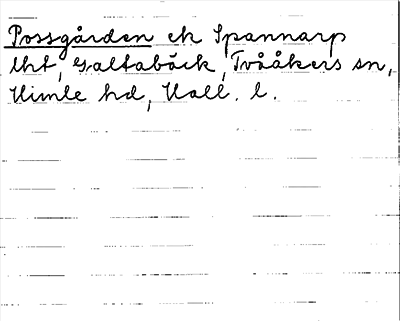 Possgården ek Spannarp
lht, Galtabäck, Tvååkers sn,
Himle hd, Hall. l.